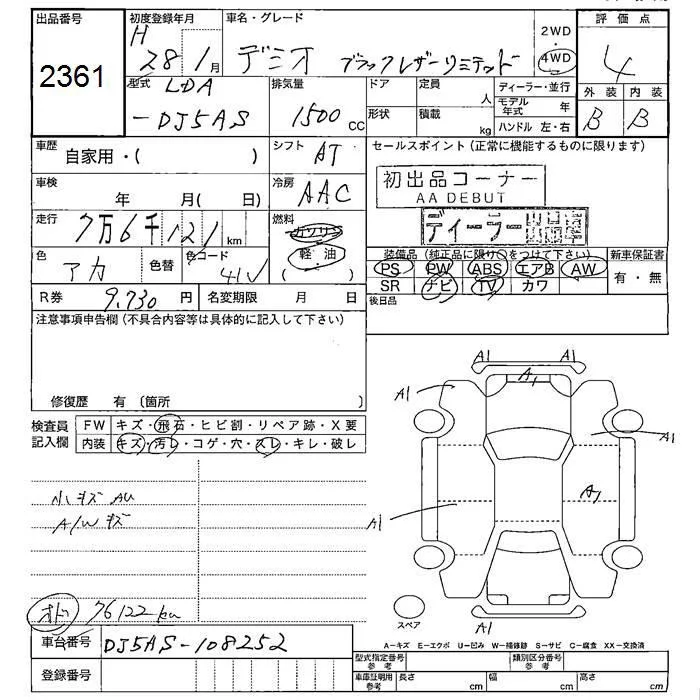 出品番号
2361
初度登録年月
H 28年 1月
車名・グレード
デミオ ブラックレザーリミテッド
2WD
・
4WD
評価点
4
型式
LDA
-DJ5AS
排気量
1500 CC
ドア
形状
定員
人
積載
kg
ディーラー・並行
モデル年式 年
ハンドル 左・右
外装
B
内装
B
車歴
自家用・( )
シフト
AT
セールスポイント (正常に機能するものに限ります)
初出品コーナー
AA DEBUT
車検
年 月( 日)
冷房
AAC
ディーラー
走行
7万6千121 km
燃料
ガソリン
軽油
( )
色
アカ
色替
色コード
41V
装備品 (純正品に限り○をつけて下さい)
PS PW ABS エアB AW
SR ナビ TV カワ
新車保証書
有・無
R券
9,730 円
名変期限 月 日
後日品
注意事項申告欄(不具合内容等は具体的に記入して下さい)
修復歴 有 〔箇所 〕
検査員
記入欄
FW キズ・飛石・ヒビ割・リペア跡・X要
内装 キズ・汚レ・コゲ・穴・スレ・キレ・破レ
小キズ AU
A/W キズ
オド 76122km
A1 A1
A1
A1
A1
A1
A1
A1
スペア
A-キズ E-エクボ U-凹み W-補修跡 S-サビ C-腐食 XX-交換済
車台番号
DJ5AS-108252
登録番号
型式指定番号
参考
類別区分番号
参考
車庫証明用
参考
長さ cm
幅 cm
高さ cm